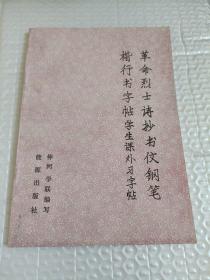 革命烈士诗抄书仪钢笔
楷行书字帖学生课外习字帖
仲衍 学联编写
能源出版社